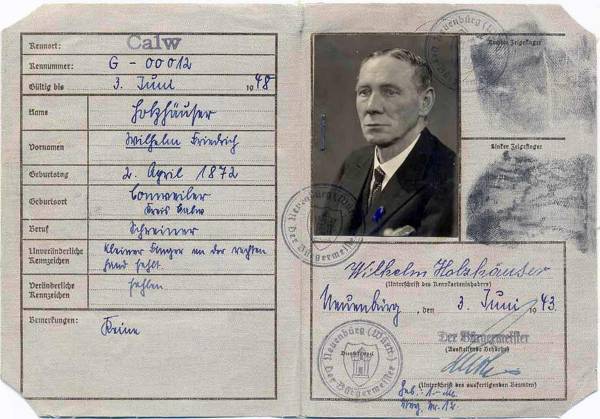 Kennort: Calw
Kennummer: G - 00012
Gültig bis 3. Juni 1948
Name Holzhäuser
Vornamen Wilhelm Friedrich
Geburtstag 2. April 1872
Geburtsort Conweiler
Kreis Calw
Beruf Schreiner
Unveränderliche Kennzeichen Kleiner Finger an der rechten Hand fehlt
Veränderliche Kennzeichen fehlen
Bemerkungen: Keine
Neuenbürg (Württ)
Der Bürgermeister
Rechter Zeigefinger
Linker Zeigefinger
Wilhelm Holzhäuser
(Unterschrift des Kennkarteninhabers)
Neuenbürg, den 3. Juni 1943.
Der Bürgermeister
(Ausstellende Behörde)
(Unterschrift des ausfertigenden Beamten)
Neuenbürg (Württ)
Dienstsiegel
Der Bürgermeister
Geb: 1.-